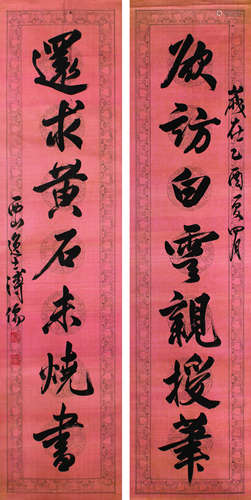 歲在乙酉夏四月
欲訪白雲親授筆
還求黃石未燒書
西山逸士溥儒